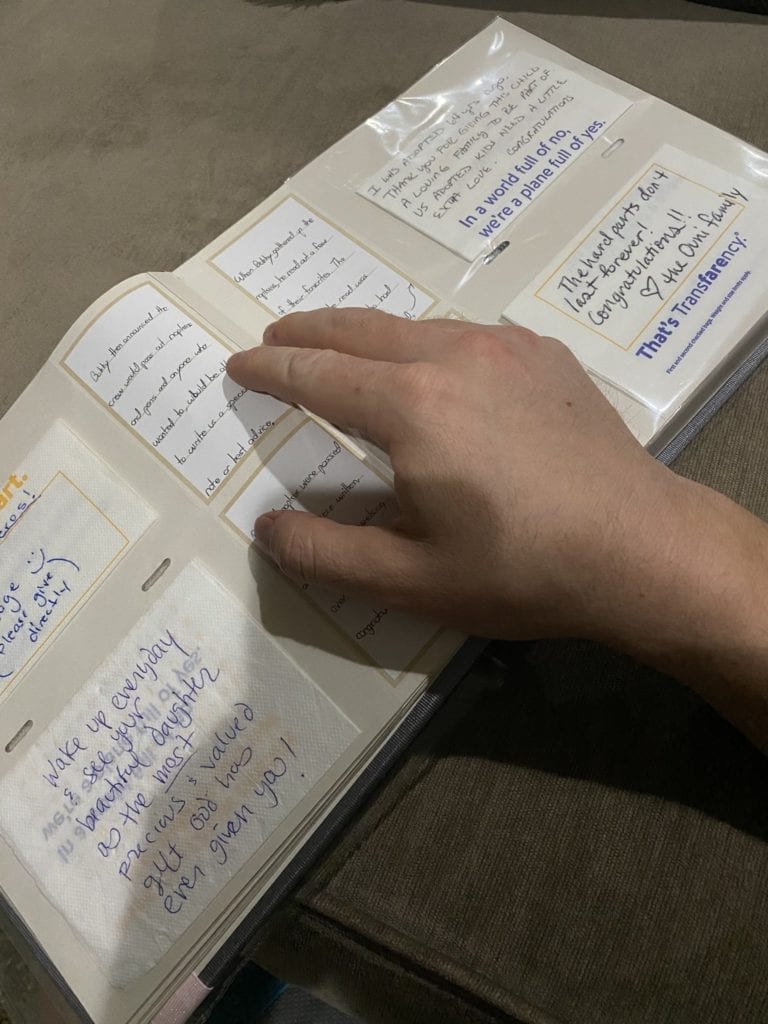 art.
(Please give
directly)
Wake up everyday
& see your
beautiful daughter
as the most
precious & valued
gift God has
ever given you!
Bobby then announced the
crew would pass out napkins
and pens and anyone who
wanted to, would be
to write us a
note or best advice.
were passed
written
When Bobby gathered up the
napkins, he read out a few
of their favorites. The
read was
had
I WAS ADOPTED 64 yrs ago.
THANK YOU FOR GIVING THIS CHILD
A LOVING FAMILY TO BE PART OF
US ADOPTED KIDS NEED A LITTLE
EXTRA LOVE. CONGRATULATIONS
In a world full of no,
we're a plane full of yes.
The hard parts don't
last forever!
Congratulations!!
♡ the Ovni family
That's Transfarency.®
First and second checked bags. Weight and size limits apply.